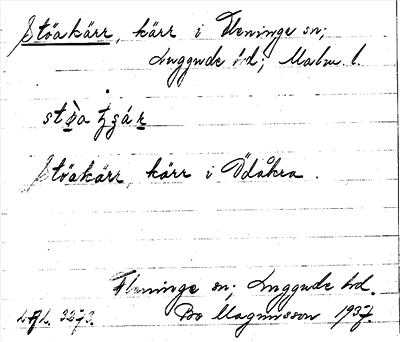 Stöakärr, kärr i Fleninge sn;
Luggude hd; Malm. l.
Stöakärr, kärr i Ödåkra.
Fleninge sn; Luggude hd.
Bo Magnusson 1937.